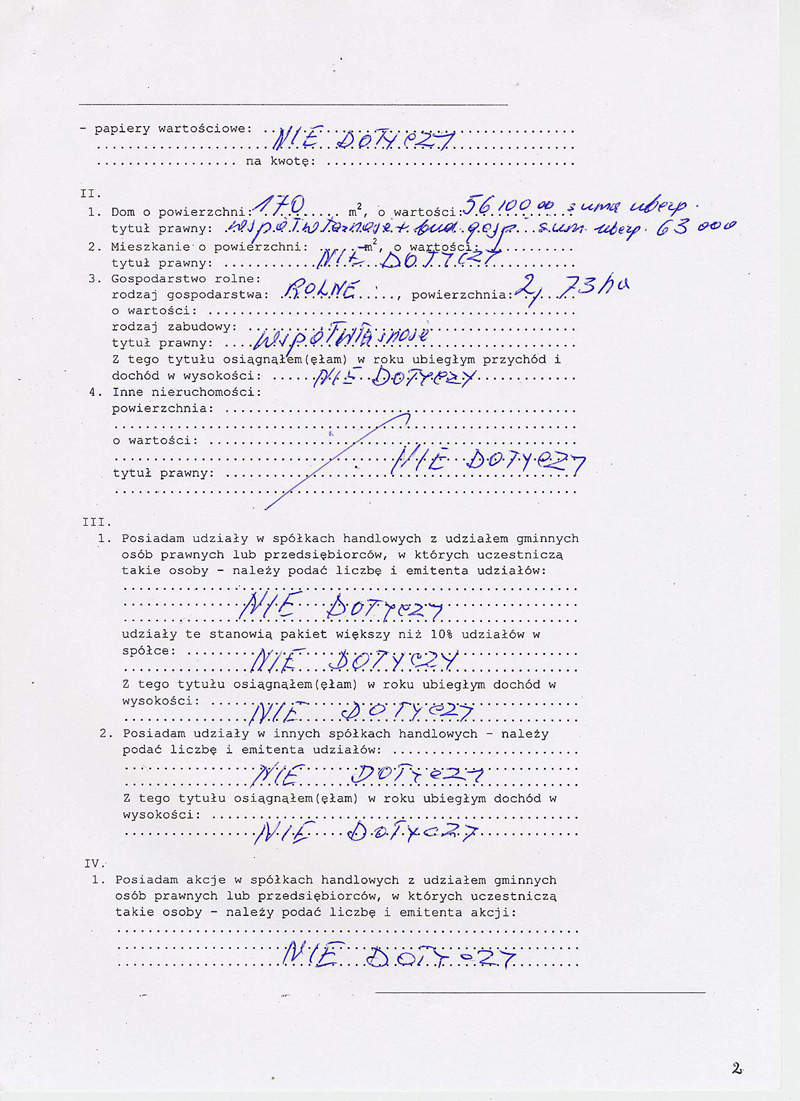 - papiery wartościowe: ................................
NIE DOTYCZY
.................. na kwotę: ................................
II.
1. Dom o powierzchni: 170 m², o wartości: 56 100 00 suma ubezp.
tytuł prawny: współwłasność + bud. gosp. sum. ubezp. 63 000
2. Mieszkanie o powierzchni: ...... m², o wartości: ............
tytuł prawny: NIE DOTYCZY
3. Gospodarstwo rolne:
rodzaj gospodarstwa: ROLNE ....., powierzchnia: 2,73 ha
o wartości: ................................
rodzaj zabudowy: ................................
tytuł prawny: WSPÓŁWŁASNOŚĆ
Z tego tytułu osiągnąłem(ęłam) w roku ubiegłym przychód i
dochód w wysokości: NIE DOTYCZY
4. Inne nieruchomości:
powierzchnia: ................................
................................
o wartości: ................................
NIE DOTYCZY
tytuł prawny: ................................
................................
III.
1. Posiadam udziały w spółkach handlowych z udziałem gminnych
osób prawnych lub przedsiębiorców, w których uczestniczą
takie osoby - należy podać liczbę i emitenta udziałów:
................................
NIE DOTYCZY
................................
udziały te stanowią pakiet większy niż 10% udziałów w
spółce: ................................
NIE DOTYCZY
Z tego tytułu osiągnąłem(ęłam) w roku ubiegłym dochód w
wysokości: ................................
NIE DOTYCZY
2. Posiadam udziały w innych spółkach handlowych - należy
podać liczbę i emitenta udziałów: ........................
NIE DOTYCZY
Z tego tytułu osiągnąłem(ęłam) w roku ubiegłym dochód w
wysokości: ................................
NIE DOTYCZY
IV.
1. Posiadam akcje w spółkach handlowych z udziałem gminnych
osób prawnych lub przedsiębiorców, w których uczestniczą
takie osoby - należy podać liczbę i emitenta akcji:
................................
NIE DOTYCZY
2